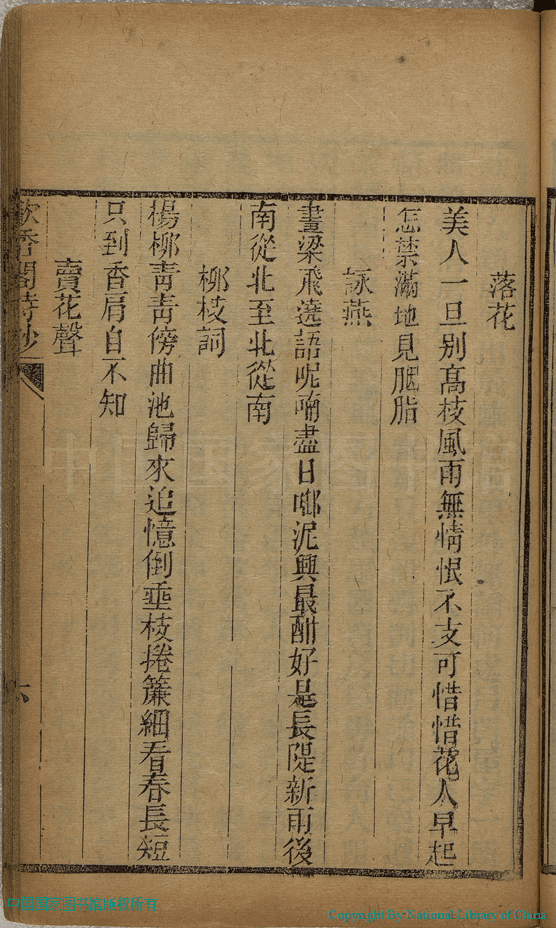 落花
美人一旦別高枝風雨無情恨不支可惜惜花人早起
怎禁滿地見胭脂
詠燕
畫梁飛遶語呢喃盡日啣泥興最酣好是長隄新雨後
南從北至北從南
柳枝詞
楊柳青青傍曲池歸來追憶倒垂枝捲簾細看春長短
只到香肩自不知
賣花聲
香閣詩鈔
六
Copyright By National Library of China